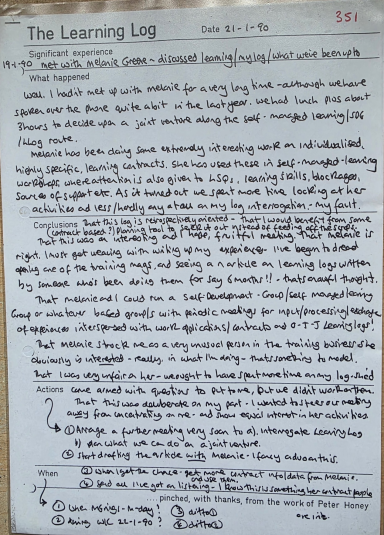 351
The Learning Log Date 21-1-90
Significant experience
19-1-90 met with Melanie Greene - discussed learning/my log/what we've been up to
What happened
Well. I hadn't met up with Melanie for a very long time - although we have
spoken over the phone quite a bit in the last year. We had lunch plus about
3 hours to decide upon a joint venture along the self-managed learning/SDG
/LLog route.
Melanie has been doing some extremely interesting work on individualised,
highly specific, learning contracts. She has used these in self-managed-learning
workshops where attention is also given to LSQs, learning skills, blockages,
sources of support etc. As it turned out we spent more time looking at her
activities and less/hardly any at all on my log interrogation - my fault.
Conclusions That this log is retrospectively oriented - that I would benefit from some
(contract based?) planning tool to seek it out instead of feeding off the scraps.
That this was an interesting and I hope, fruitful meeting. That Melanie is
right. I must get weaving with writing up my experience. I've begun to dread
opening one of the training mags, and seeing an article on learning logs written
by someone who's been doing them for say 6 months!! - that's an awful thought.
That Melanie and I could run a Self-Development-Group/self managed learning
Group or whatever based group/s with periodic meetings for input/processing/exchange
of experiences interspersed with work applications/contracts and O-T-J Learning logs!
That Melanie struck me as a very unusual person in the training business. She
obviously is interested - really, in what I'm doing - that's something to model.
That I was very unfair on her - we ought to have spent more time on my log - she'd
Actions came armed with questions to put to me, but we didn't work on them.
That this was deliberate on my part. I wanted to steer our meeting
away from concentrating on me - and show equal interest in her activities
① Arrange a further meeting very soon to a). interrogate Learning Log
b) plan what we can do on a joint venture.
② Start drafting the article with Melanie - I fancy a duo on this.
③ When I get the chance - get more contract info/data from Melanie.
and use them.
④ Send all I've got on listening - I know this is something her contract people
are into.
When
① When M rings - Monday? ③ ditto ①
② during W/C 22-1-90? ④ ditto ②
....pinched, with thanks, from the work of Peter Honey